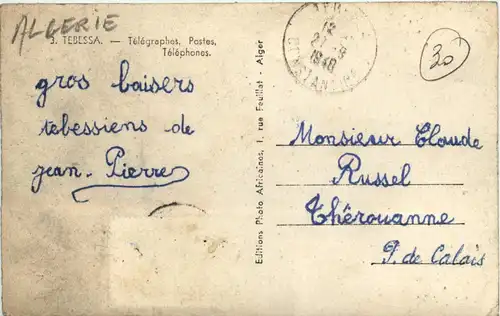 ALGERIE
3. TEBESSA. — Télégraphes, Postes,
Téléphones.
gros baisers
tebessiens de
jean-Pierre
Editions Photo Africaines, 1, rue Feuillat - Alger
CONSTANTINE
30
Monsieur Claude
Russel
Thérouanne
P. de Calais